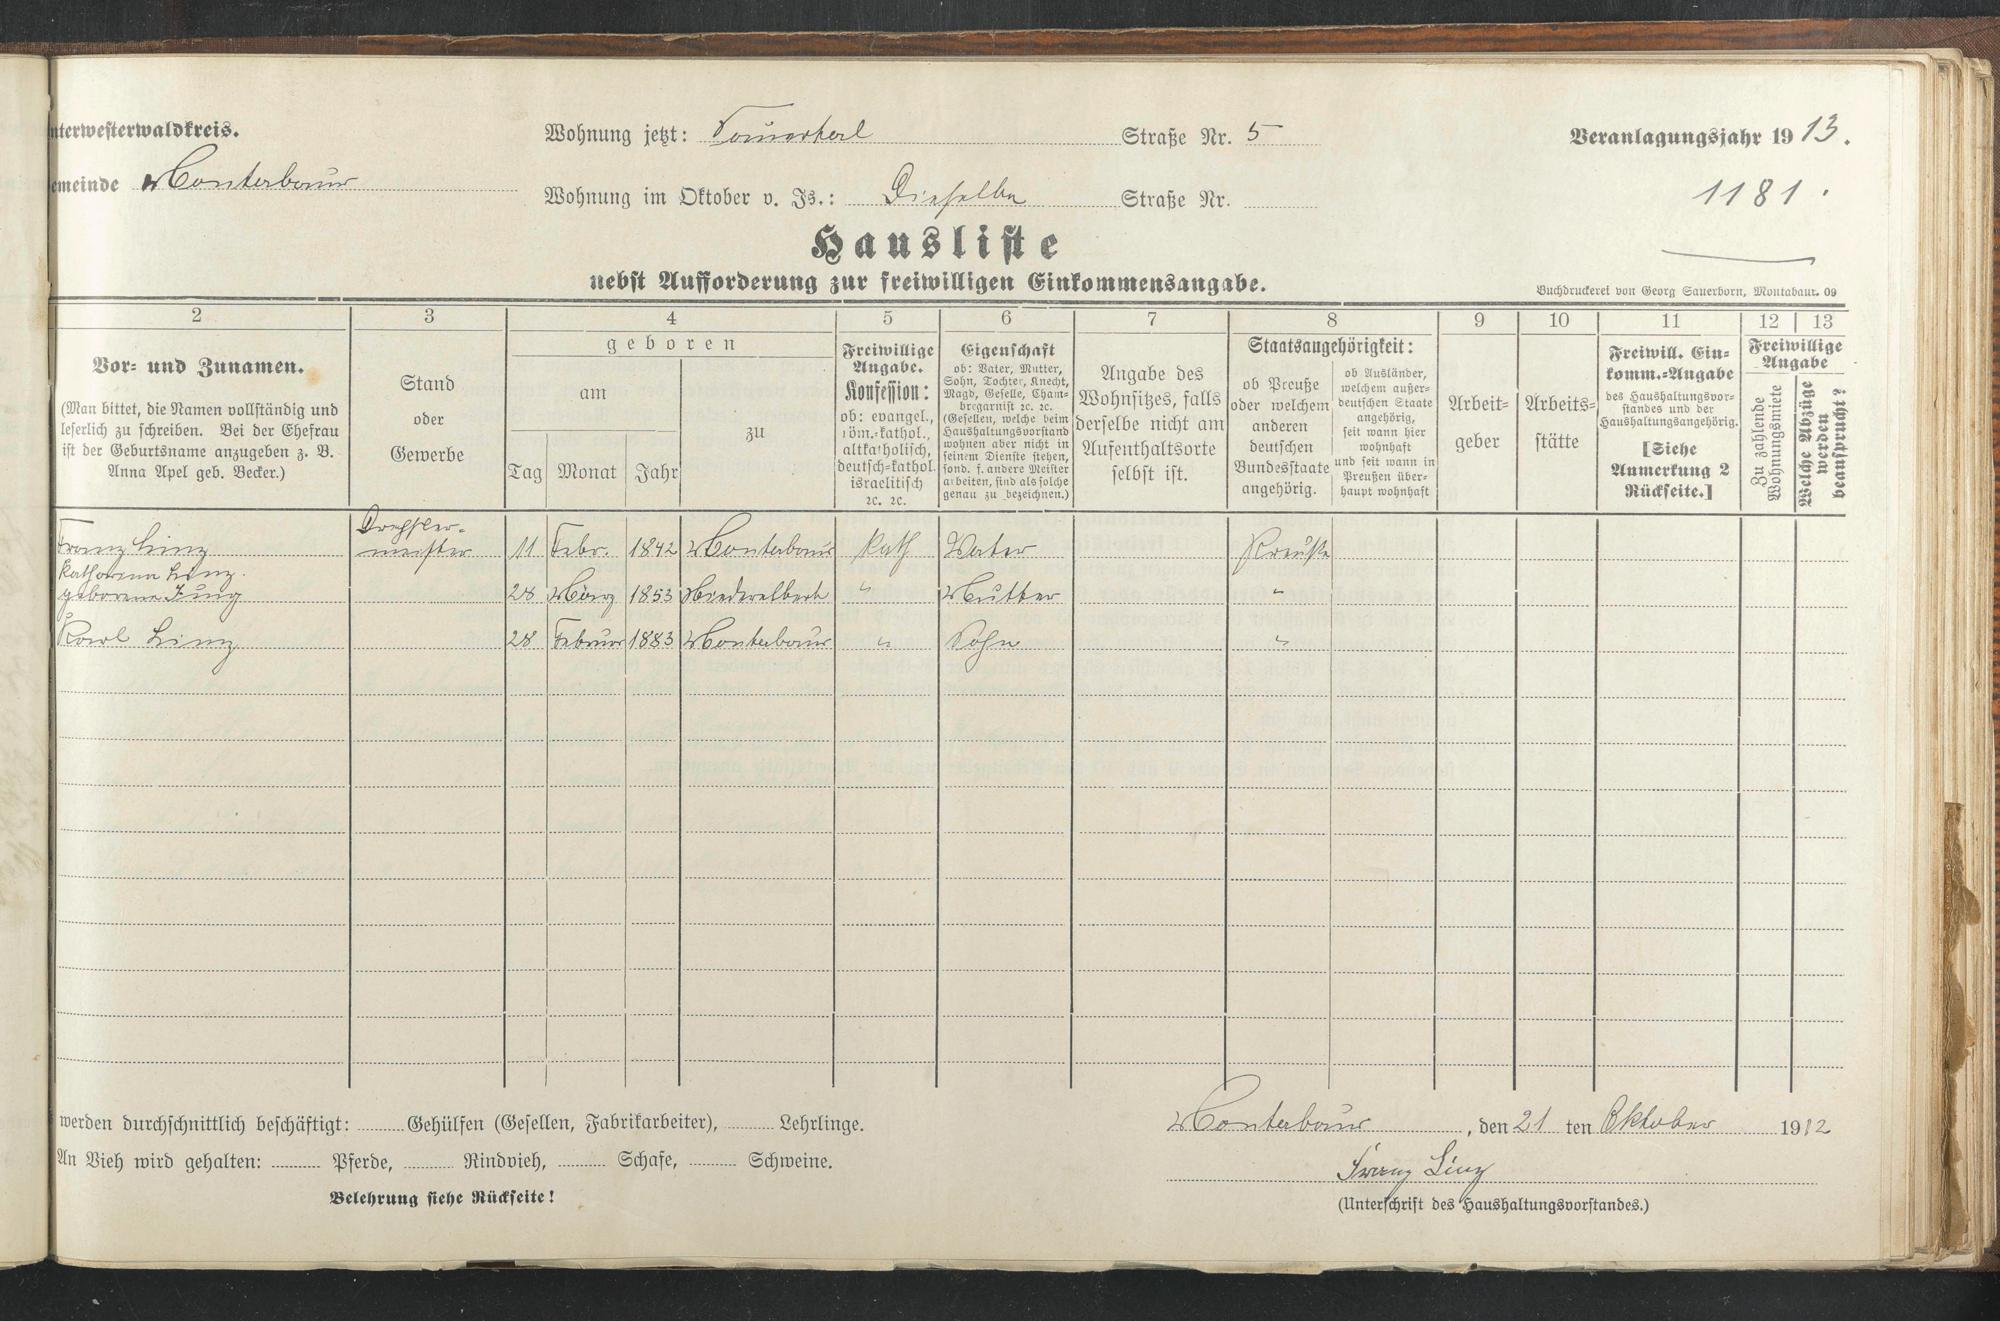 nterwesterwaldkreis.
Wohnung jetzt: Sauertal Straße Nr. 5
Veranlagungsjahr 1913.
emeinde Montabaur
Wohnung im Oktober v. Js.: Dieselbe Straße Nr.
1181.
Hausliste
nebst Aufforderung zur freiwilligen Einkommensangabe.
Buchdruckerei von Georg Sauerborn, Montabaur. 09
2 3 4 5 6 7 8 9 10 11 12 13
Vor- und Zunamen.
(Man bittet, die Namen vollständig und
leserlich zu schreiben. Bei der Ehefrau
ist der Geburtsname anzugeben z. B.
Anna Apel geb. Becker.)
Stand
oder
Gewerbe
geboren
am
Tag Monat Jahr
zu
Freiwillige
Angabe.
Konfession:
ob: evangel.,
röm.-kathol.,
altkatholisch,
deutsch-kathol.
israelitisch
2c. 2c.
Eigenschaft
ob: Vater, Mutter,
Sohn, Tochter, Knecht,
Magd, Geselle, Cham-
bregarnist 2c. 2c.
(Gesellen, welche beim
Haushaltungsvorstand
wohnen aber nicht in
seinem Dienste stehen,
sond. f. andere Meister
arbeiten, sind als solche
genau zu bezeichnen.)
Angabe des
Wohnsitzes, falls
derselbe nicht am
Aufenthaltsorte
selbst ist.
Staatsangehörigkeit:
ob Preuße
oder welchem
anderen
deutschen
Bundesstaate
angehörig.
ob Ausländer,
welchem außer-
deutschen Staate
angehörig,
seit wann hier
wohnhaft
und seit wann in
Preußen über-
haupt wohnhaft
Arbeit-
geber
Arbeits-
stätte
Freiwill. Ein-
komm.-Angabe
des Haushaltungsvor-
standes und der
Haushaltungsangehörig.
[Siehe
Anmerkung 2
Rückseite.]
Freiwillige
Angabe
Zu zahlende
Wohnungsmiete
Welche Abzüge
werden
beansprucht?
Franz Linz Drechsler-
meister 11 Febr. 1842 Montabaur kath Vater Preuße
Katharina Linz.
geborene Jung 28 März 1853 Niederelbert " Mutter "
Karl Linz 28 Februar 1883 Montabaur " Sohn "
werden durchschnittlich beschäftigt: Gehülfen (Gesellen, Fabrikarbeiter), Lehrlinge.
Montabaur, den 21 ten Oktober 1912
An Vieh wird gehalten: Pferde, Rindvieh, Schafe, Schweine.
Franz Linz
Belehrung siehe Rückseite!
(Unterschrift des Haushaltungsvorstandes.)